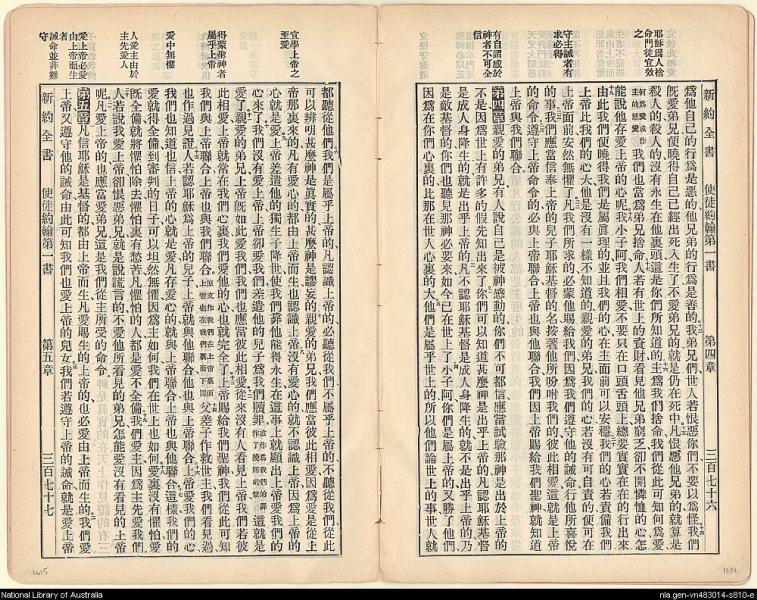 新約全書 使徒約翰第一書 第四章 三百七十六
耶穌爲人捨
命門徒宜效
之
守主誡者有
求必得
有自謂感於
神者不可全
信
爲他自己的行爲是惡的他兄弟的行爲是善的我弟兄們世人若恨惡你們不要以爲怪我們
既愛弟兄便曉得自己已經出死入生了不愛弟兄的就是仍在死中凡恨惡他兄弟的就算是
殺人的殺人的沒有永生在他裏頭這是你們所知道的主爲我們捨命我們從此可知何爲愛
我們也當爲弟兄捨命人若有世上的資財看見他兄弟窮乏卻不開憐恤的心怎
能說他存愛上帝的心呢我小子阿我們相愛不要只在口頭舌頭上總要實實在在的行出來
由此我們便曉得我們是屬眞理的並且我們的心在主面前可以安穩我們的心若責備我們
上帝比我們的心大他是沒有一樣不知道的親愛的弟兄我們的心若沒有可自責的便可在
上帝面前安然無懼了凡我們所求的必蒙他賜給我們因爲我們遵守他的誡命行他所喜悅
的事我們應當信奉上帝的兒子耶穌基督的名按著他所吩咐我們的彼此相愛這就是上帝
的命令遵守上帝命令的必與上帝聯合上帝也與他聯合我們因上帝賜給我們聖神就知道
上帝與我們聯合
第四章親愛的弟兄有人說自己是被神感動的你們不可都信應當試驗那神是出於上帝的
不是因爲世上有許多的假先知出來了你們可以知道甚麼神是出乎上帝的凡認耶穌基督
是成人身降生的就是出乎上帝的凡不認耶穌基督是成人身降生的就不是出乎上帝的乃
是敵基督的你們也聽見那神必要來如今已在世上了小子阿你們是屬上帝的又勝了他們
因爲在你們心裏的比那在世人心裏的大他們是屬乎世上的所以他們論世上的事世人就
宜學上帝之
至愛
得稟聖神者
屬乎上帝
愛中無懼
人愛主由於
主先愛人
愛上帝必愛
由上帝而生
者
誡命並非難
守
都聽從他們我們是屬乎上帝的凡認識上帝的必聽從我們不屬乎上帝的不聽從我們從此
可以辨明甚麼神是眞實的甚麼神是謬妄的親愛的弟兄我們應當彼此相愛因爲愛是從上
帝那裏來的凡有愛心的都由上帝而生也認識上帝沒有愛心的就不認識上帝因爲上帝就
是愛上帝差遣他的獨生子降世使我們靠他能得永生在這事上就顯出上帝愛我們的
心來了我們沒有愛上帝上帝卻愛我們差遣他的兒子爲我們贖罪這就是
愛了親愛的弟兄上帝既如此愛我們我們也應當彼此相愛從來沒有人看見上帝我們若彼
此相愛上帝就常在我們心裏我們愛他的心也就完全了上帝賜給我們聖神我們從此可知
我們與上帝聯合上帝也與我們聯合父差子作救世主我們看見過
也作過見證人若認耶穌爲上帝的兒子上帝就與他聯合他也與上帝聯合上帝愛我們的心
我們也知道也信上帝的心就是愛凡存愛心的就與上帝聯合上帝也與他聯合這樣我們的
愛就得全備到審判的日子可以坦然無懼因爲主如何我們在世上也如何愛裏沒有懼怕愛
既全備就將懼怕除去懼怕裏有愁苦凡懼怕的人都是愛不全備我們愛主因爲主先愛我們
人若說我愛上帝卻恨惡弟兄就是說謊言的不愛他所看見的弟兄怎能愛沒有看見的上帝
呢凡愛上帝的也應當愛弟兄這是我們從主所受的命令
第五章凡信耶穌是基督的都由上帝而生凡愛賜生的上帝的也必愛由上帝而生的我們愛
上帝又遵守他的誡命由此可知我們也愛上帝的兒女我們若遵守上帝的誡命就是愛上帝
新約全書 使徒約翰第一書 第五章 三百七十七
1615
1614
National Library of Australia
nla.gen-vn483014-s810-e